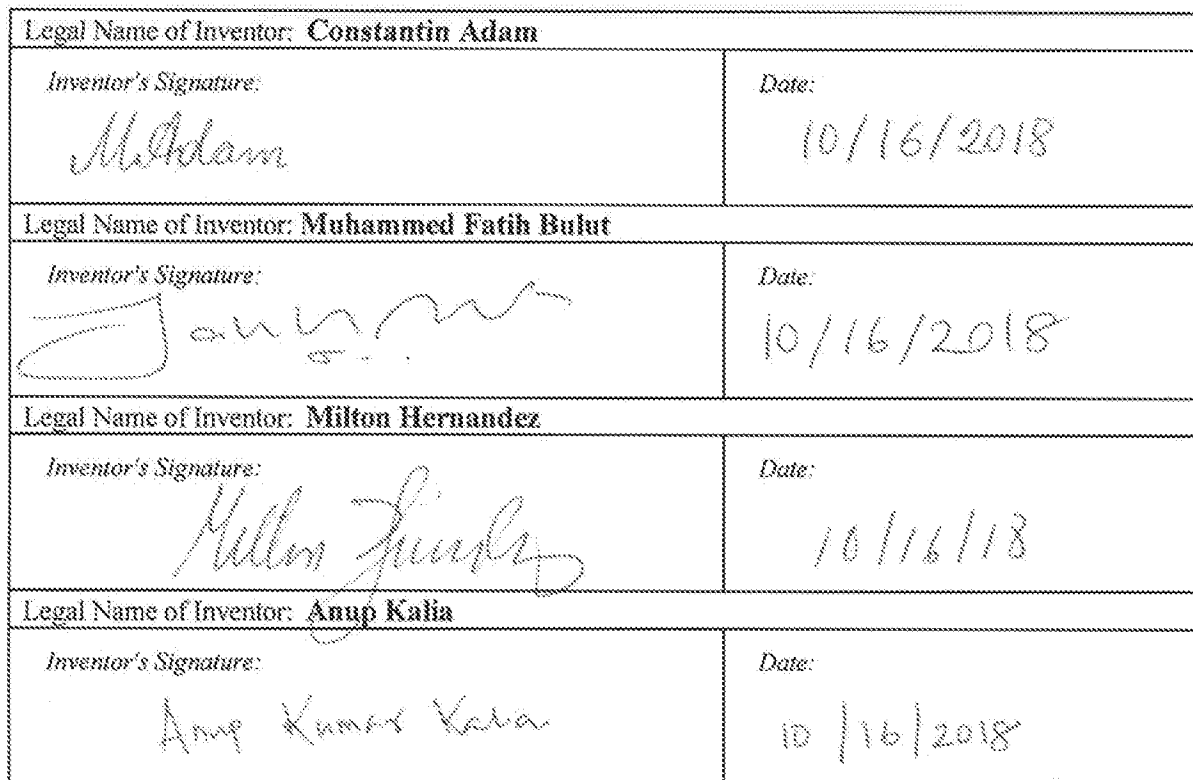 Legal Name of Inventor: Constantin Adam
Inventor's Signature: Date:
M. Adam 10/16/2018
Legal Name of Inventor: Muhammed Fatih Bulut
Inventor's Signature: Date:
10/16/2018
Legal Name of Inventor: Milton Hernandez
Inventor's Signature: Date:
10/16/18
Legal Name of Inventor: Anup Kalia
Inventor's Signature: Date:
Anup Kumar Kalia 10/16/2018